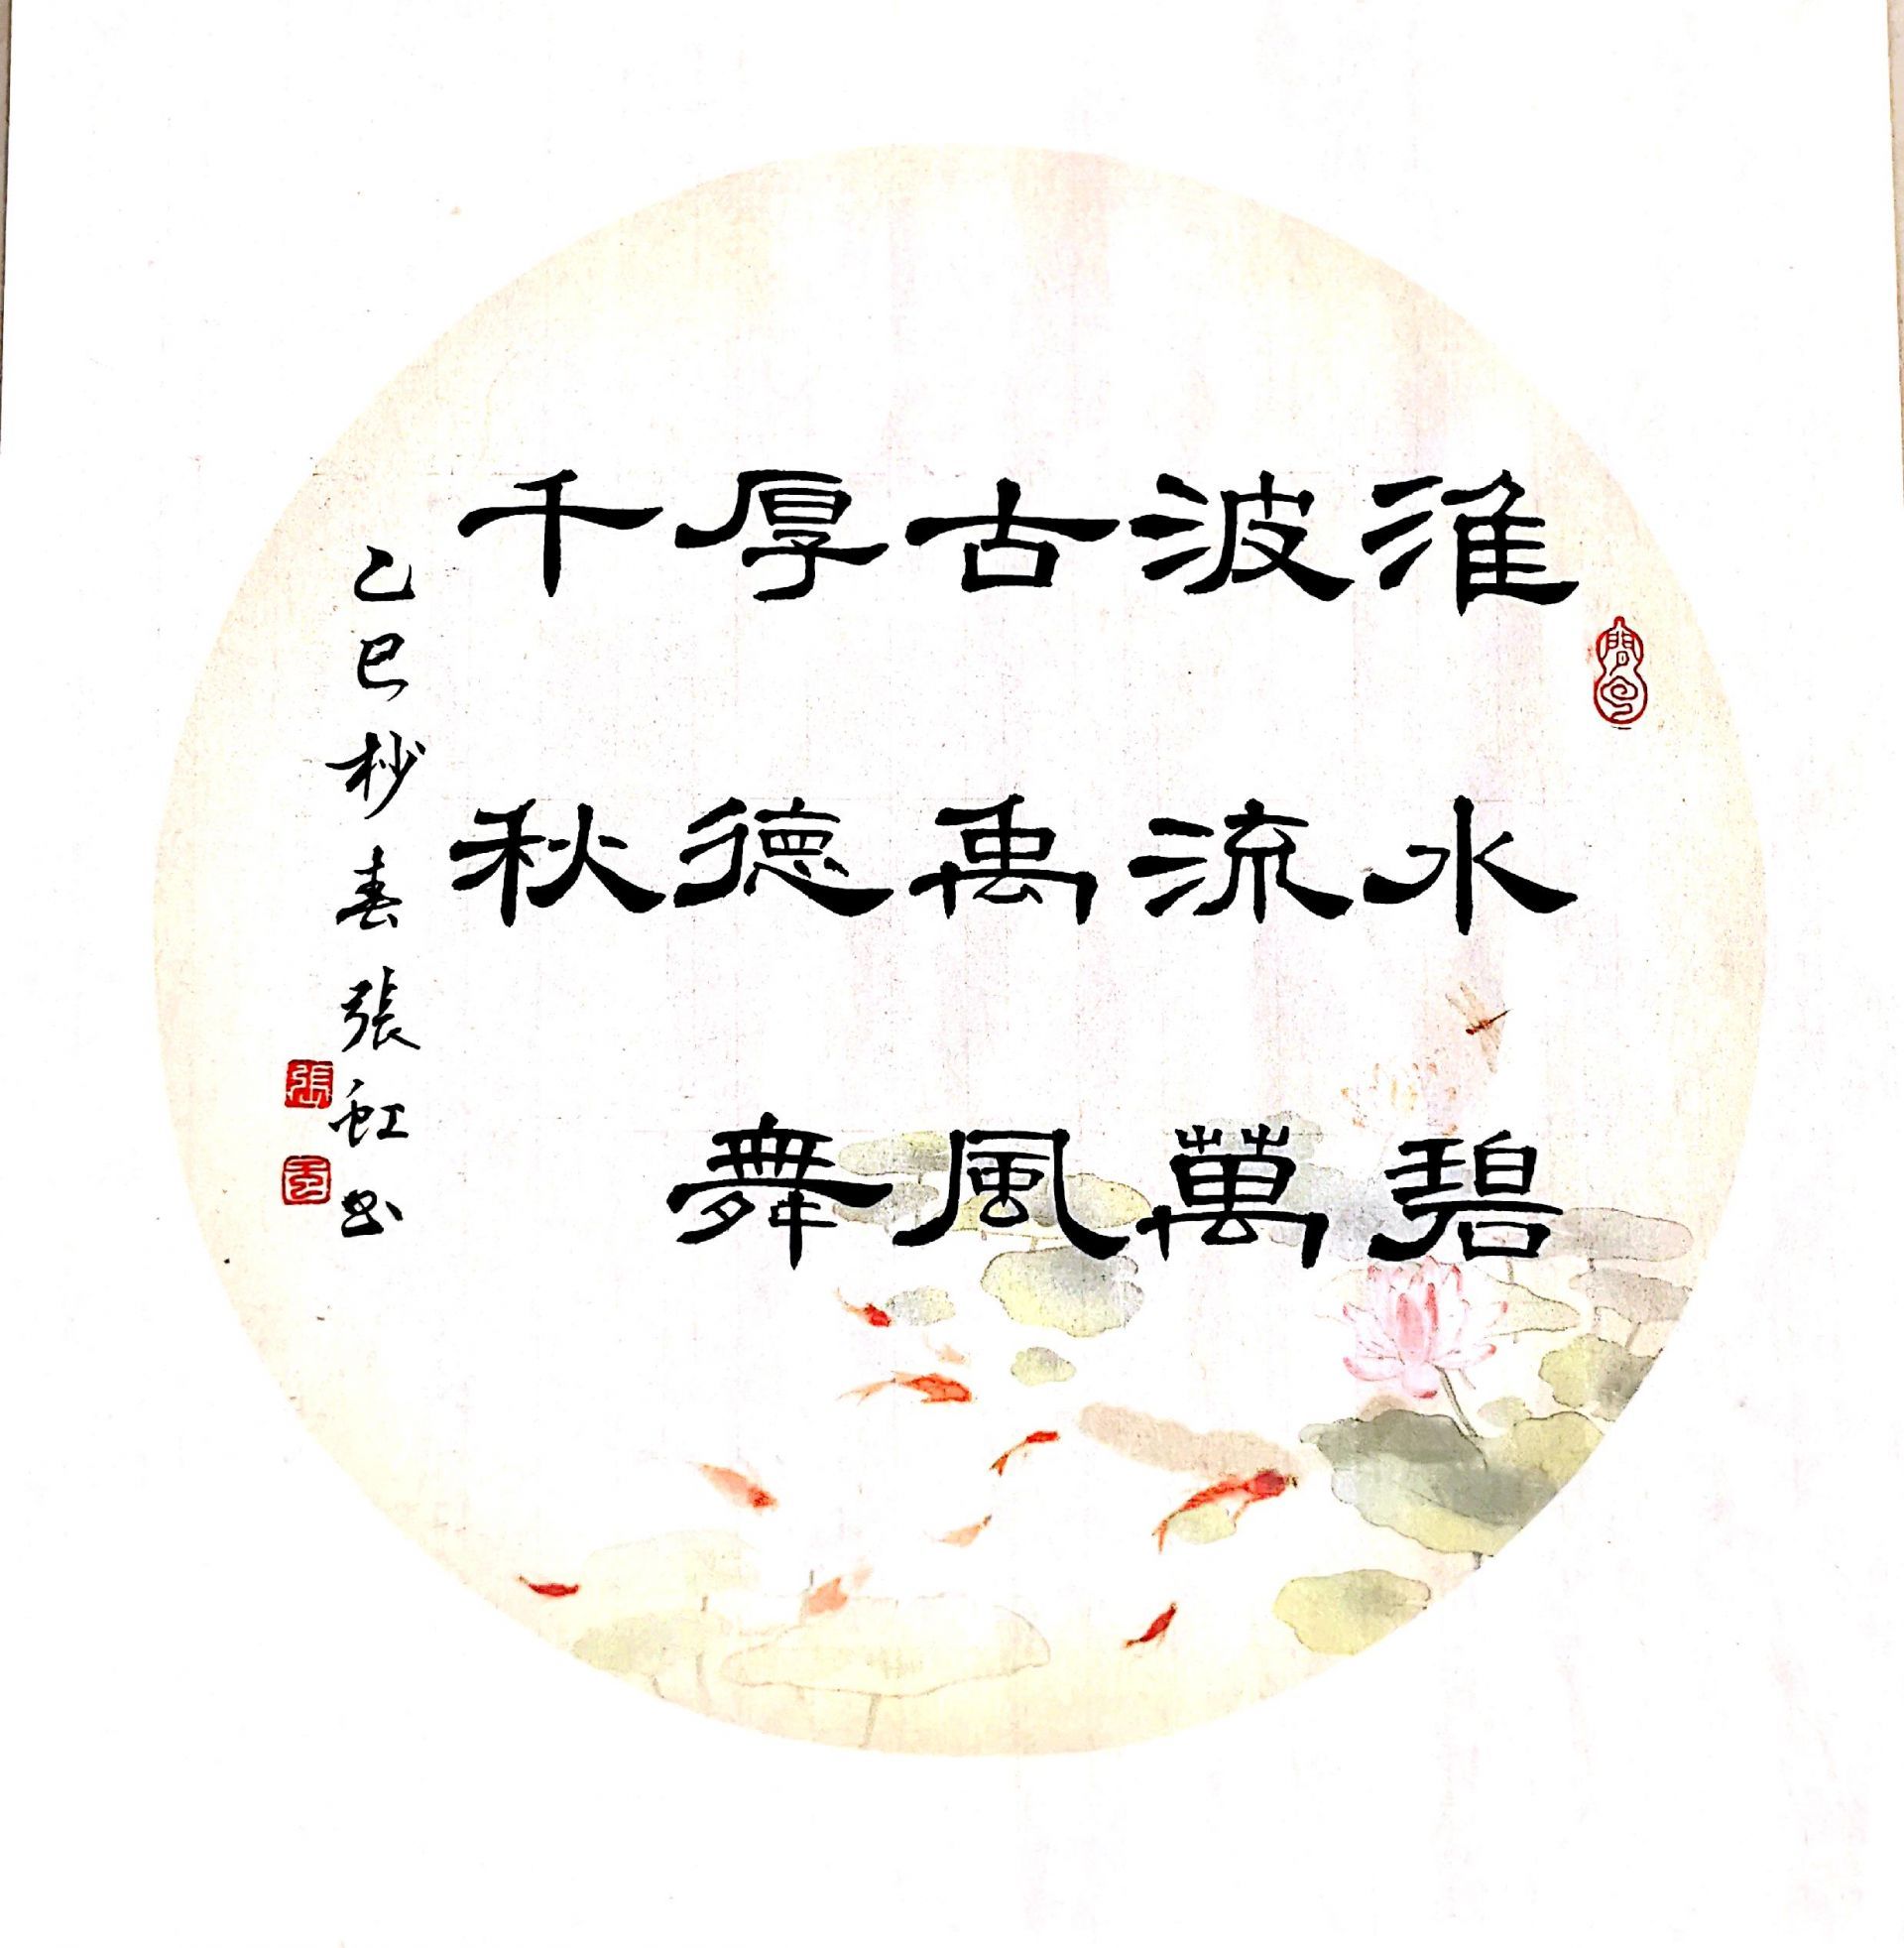 淮水碧
波流萬
古禹風
厚德舞
千秋
乙巳杪春張虹书
張